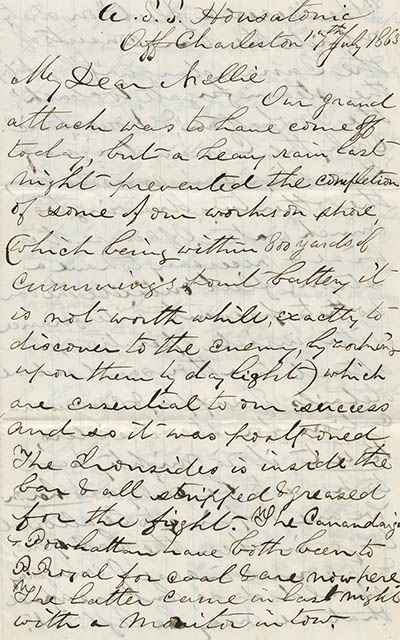 U.S.S. Housatonic
Off Charleston 17th July 1863
My Dear Nellie
Our grand
attack was to have come off
today, but a heavy rain last
night prevented the completion
of some of our works on shore,
(which being within 800 yards of
Cummings point battery it
is not worth while, exactly to
discover to the enemy, by working
upon them by day light) which
are essential to our success
and so it was postponed
The Ironsides is inside the
bar & all stripped & greased
for the fight. The Canandaigua
& Powhattan have both been to
P. Royal for coal & are now here
The latter came in last night
with a Monitor in tow.